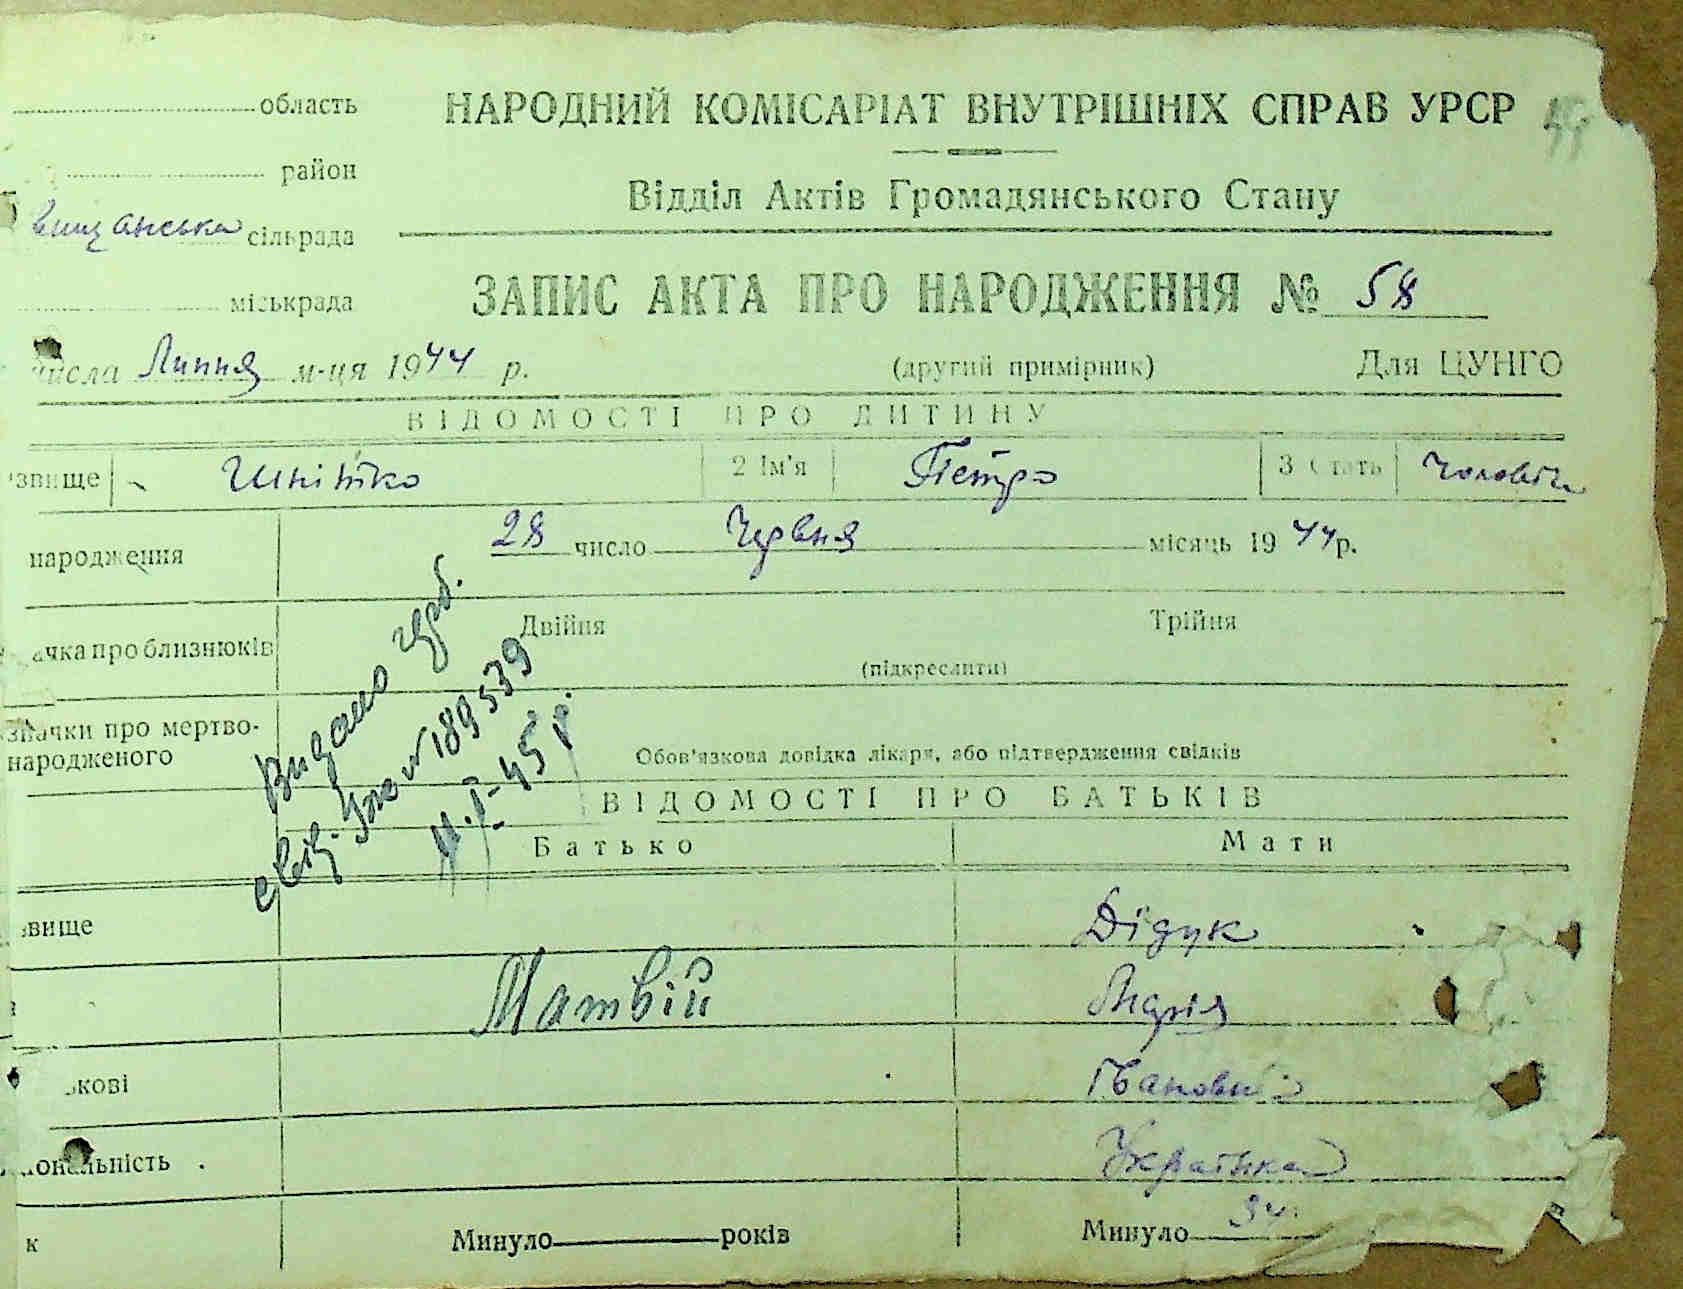 область
НАРОДНИЙ КОМІСАРІАТ ВНУТРІШНІХ СПРАВ УРСР
район
Відділ Актів Громадянського Стану
сільрада
міськрада
ЗАПИС АКТА ПРО НАРОДЖЕННЯ № 58
числа Липня м-ця 1944 р.
(другий примірник)
Для ЦУНГО
ВІДОМОСТІ ПРО ДИТИНУ
звище
2 Ім'я Петро
3 Стать Чоловіч
народження 28 число Червня місяць 1944 р.
ачка про близнюків Двійня Трійня
(підкреслити)
значки про мертво-
народженого
Обов'язкова довідка лікаря, або підтвердження свідків
Видано
свід. № 189539
45 р.
ВІДОМОСТІ ПРО БАТЬКІВ
Батько Мати
звище Дідук
Матвій Марія
ькові
іональність Українка
к Минуло років Минуло 34